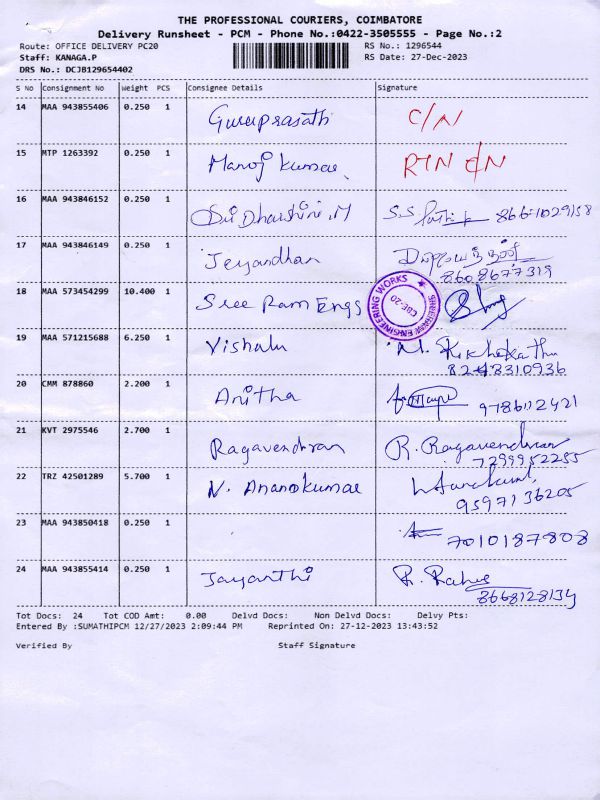 THE PROFESSIONAL COURIERS, COIMBATORE
Delivery Runsheet - PCM - Phone No.:0422-3505555 - Page No.:2
Route: OFFICE DELIVERY PC20 RS No.: 1296544
Staff: KANAGA.P RS Date: 27-Dec-2023
DRS No.: DCJB129654402
S No Consignment No Weight PCS Consignee Details Signature
14 MAA 943855406 0.250 1 Guruprasath C/N
15 MTP 1263392 0.250 1 Manoj Kumar RTN C/N
16 MAA 943846152 0.250 1 Sri Dharshini.M S.S
17 MAA 943846149 0.250 1 Jeyandhan
8608677319
18 MAA 573454299 10.400 1 Sree Ram Engs
SREERAM ENGINEERING WORKS
CBE-20
19 MAA 571215688 6.250 1 Vishalu
8248310936
20 CMM 878860 2.200 1 Anitha 9786112421
21 KVT 2975546 2.700 1 Ragavendran R. Ragavendran
7299952255
22 TRZ 42501289 5.700 1 N. Anandkumar
9597136205
23 MAA 943850418 0.250 1 7010187808
24 MAA 943855414 0.250 1 Jayanthi R. Rahul
8668128134
Tot Docs: 24 Tot COD Amt: 0.00 Delvd Docs: Non Delvd Docs: Delvy Pts:
Entered By :SUMATHIPCM 12/27/2023 2:09:44 PM Reprinted On: 27-12-2023 13:43:52
Verified By Staff Signature